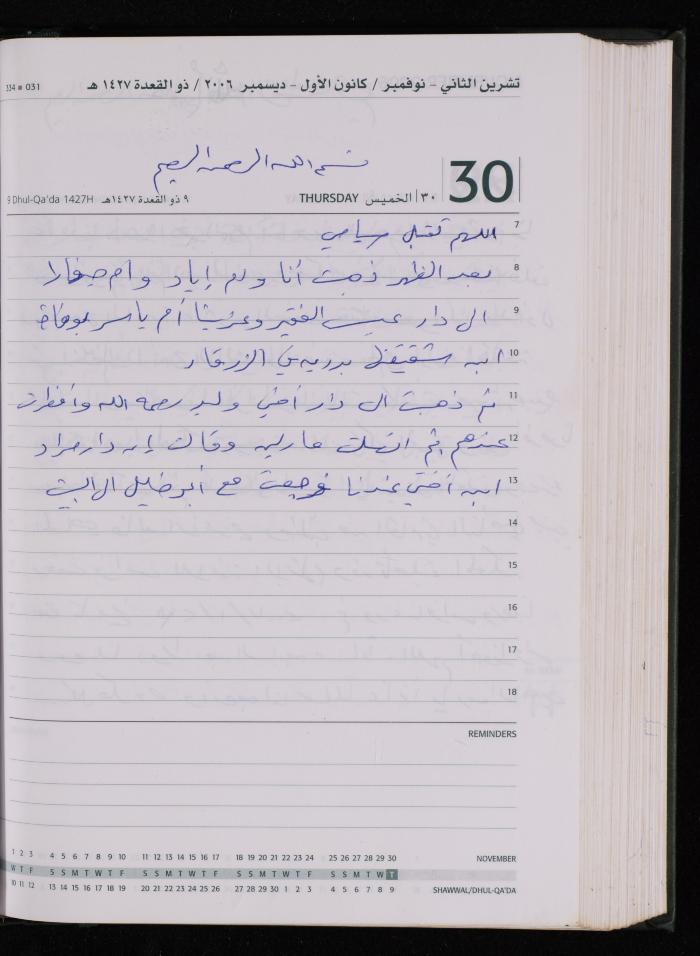 تشرين الثاني - نوفمبر / كانون الأول - ديسمبر ٢٠٠٦ / ذو القعدة ١٤٢٧ هـ
334 ■ 031
بسم الله الرحمن الرحيم
30
٣٠ الخميس THURSDAY
٩ ذو القعدة ١٤٢٧هـ 9 Dhul-Qa'da 1427H
7 اللهم تقبل صيامي
8 بعد الظهر ذهبت أنا و أم إياد وأم
9 الى دار عيسى الفقير وعزينا أم ياسر بوفاة
10 ابن شقيقها الزرقاء
11 ثم ذهبت الى دار أختي وليد رحمه الله وأفطرت
12 عندهم ثم اتصلت وقالت إن دار مراد
13 ابن أختي عندنا فرجعت مع أبو خليل الى البيت
14
15
16
17
18
REMINDERS
1 2 3 4 5 6 7 8 9 10 11 12 13 14 15 16 17 18 19 20 21 22 23 24 25 26 27 28 29 30 NOVEMBER
W T F S S M T W T F S S M T W T F S S M T W T F S S M T W T
10 11 12 13 14 15 16 17 18 19 20 21 22 23 24 25 26 27 28 29 30 1 2 3 4 5 6 7 8 9 SHAWWAL/DHUL-QA'DA